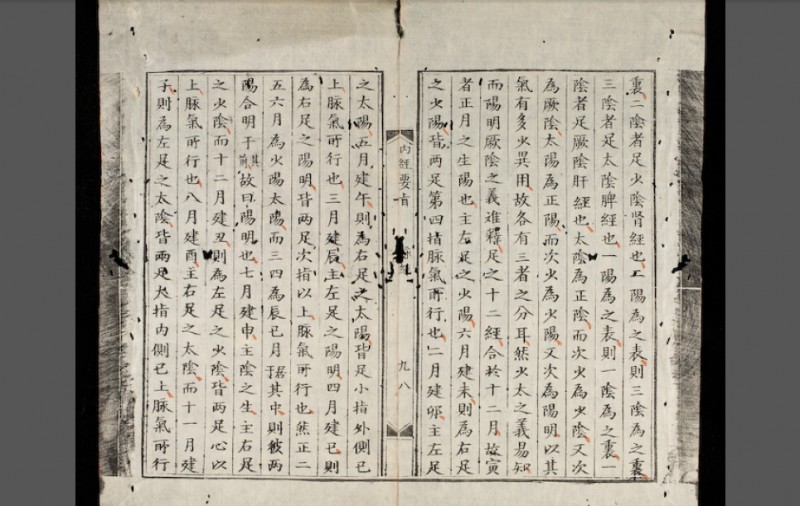 裏二陰者足少陰肾經也二陽為之表則三陰為之裏一
三陰者足太陰脾經也一陽為之表則一陰為之裏一
陰者足厥陰肝經也太陰為正陰而次少為少陰又次
為厥陰太陽為正陽而次少為少陽又次為陽明以其
氣有多少異用故各有三者之分耳然少太之義易知
而陽明厥陰之義進釋足之十二經合於十二月故寅
者正月之生陽也主左足之少陽六月建未則為右足
之少陽皆两足第四指脉氣所行也二月建卯主左足
内經要旨
九八
之太陽五月建午則為右足之太陽皆足小指外側已
上脉氣所行也三月建辰主左足之陽明四月建巳則
為右足之陽明皆两足次指以上脉氣所行也然正二
五六月為少陽太陽而三四為辰巳月居于其中則彼两
陽合明于其前故曰陽明也七月建申主陰之生主右足
之少陰而十二月建丑則為左足之少陰皆两足心以
上脉氣所行也八月建酉主右足之太陰而十一月建
子則為左足之太陰皆两足大指内側已上脉氣所行